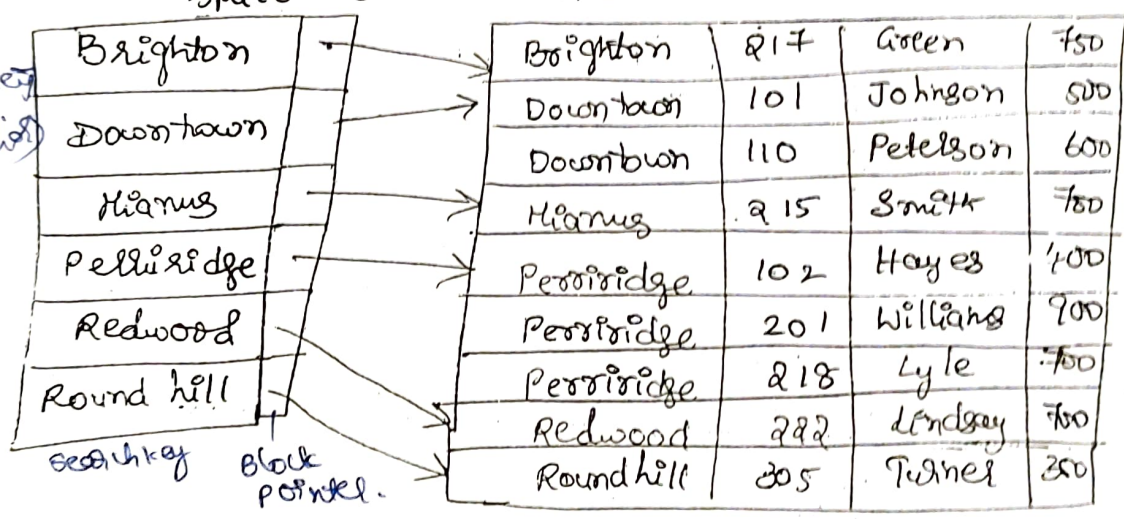 Brighton
Downtown
Hianus
Perriridge
Redwood
Round hill
Searchkey
Block
pointer.
Brighton 217 Green 750
Downtown 101 Johnson 500
Downtown 110 Peterson 600
Hianus 215 Smith 750
Perriridge 102 Hayes 400
Perriridge 201 Williams 900
Perriridge 218 Lyle 700
Redwood 222 Lindsay 700
Roundhill 305 Turner 350